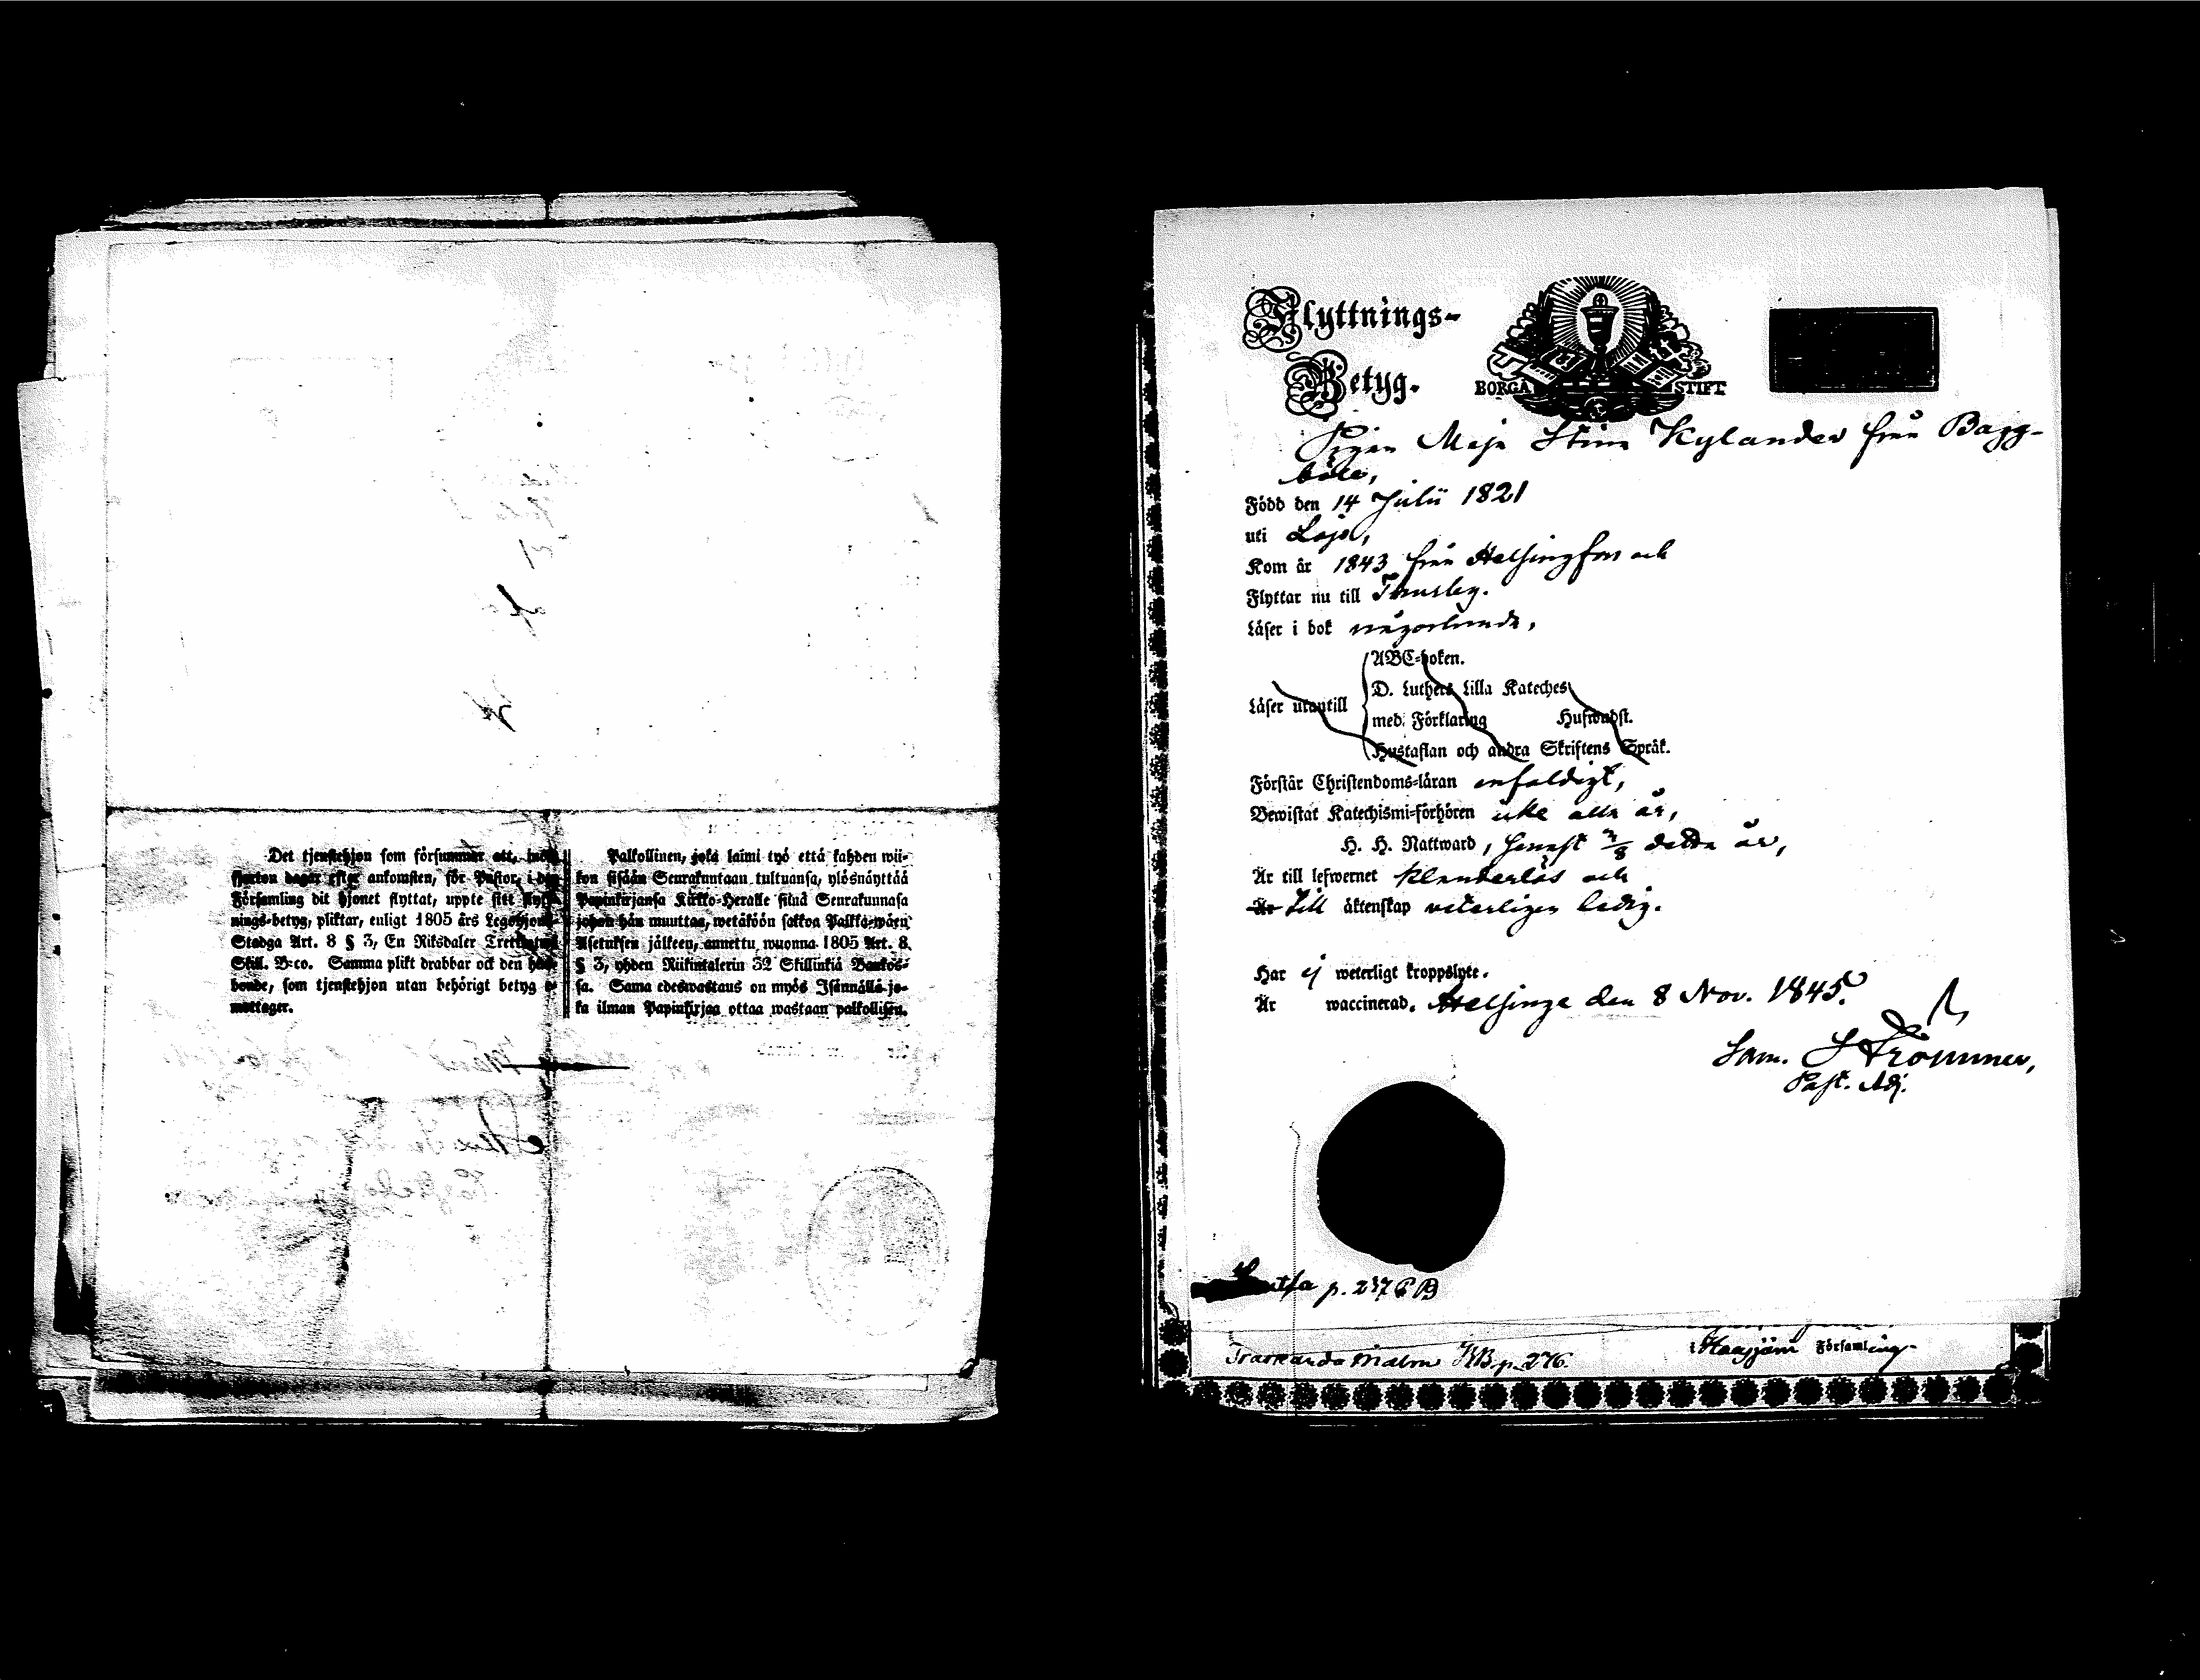 Det tjenstehjon som försummar att, inom
fjorton dagar efter ankomsten, för Pastor, i den
Församling dit hjonet flyttat, uppte sitt flytt-
nings-betyg, pliktar, enligt 1805 års Legohjons-
Stadga Art. 8 § 3, En Riksdaler Trettiotwå
Skill. B:co. Samma plikt drabbar ock den hus-
bonde, som tjenstehjon utan behörigt betyg e-
mottager.
Palkollinen, joka laimi lyö että kahden wii-
kon sisään Seurakuntaan tultuansa, ylösnäyttää
Papinkirjansa Kirkko-Herralle siinä Seurakunnasa
johon hän muuttaa, wetäköön sakkoa Palkka-wäen
Asetuksen jälkeen, annettu wuonna 1805 Art. 8
§ 3, yhden Riikintalerin 32 Skillinkiä Bankos-
sa. Sama edeswastaus on myös Isännällä jo-
ka ilman Papinkirjaa ottaa wastaan palkollisen.
Flyttnings-
Betyg.
BORGÅ STIFT
Pigan Maja Stina Kylander från Bagg-
böle,
Född den 14 Julii 1821
uti Lojo,
Kom år 1843 från Helsingfors och
Flyttar nu till Thusby.
Läser i bok någorlunda,
ABC-boken.
D. Luthers Lilla Kateches
Läser utantill
med Förklaring Hufwudst.
Hustaflan och andra Skriftens Språk.
Förstår Christendoms-läran enfaldigt,
Bewistat Katechismi-förhören icke alla år,
H. H. Nattward, senast /8 detta år,
Är till lefwernet klanderlös och
Är till äktenskap veterligen ledig.
Har ej weterligt kroppslyte.
Är waccinerad. Helsinge den 8 Nov. 1845.
Sam. Strömmer,
Past. Adj.
p. 237 CB
Träskända Malm KB. p. 276.
Församling